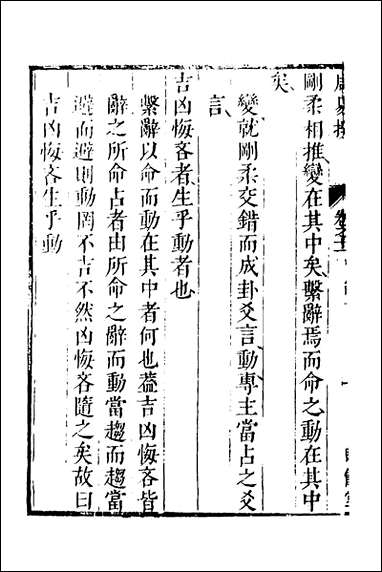 剛柔相推變在其中矣繫辭焉而命之動在其中
矣
變就剛柔交錯而成卦爻言動專主當占之爻
言
吉凶悔吝者生乎動者也
繫辭以命而動在其中者何也蓋吉凶悔吝皆
辭之所命占者由所命之辭而動當趨而趨當
避而避則動罔不吉不然凶悔吝隨之矣故曰
吉凶悔吝生乎動